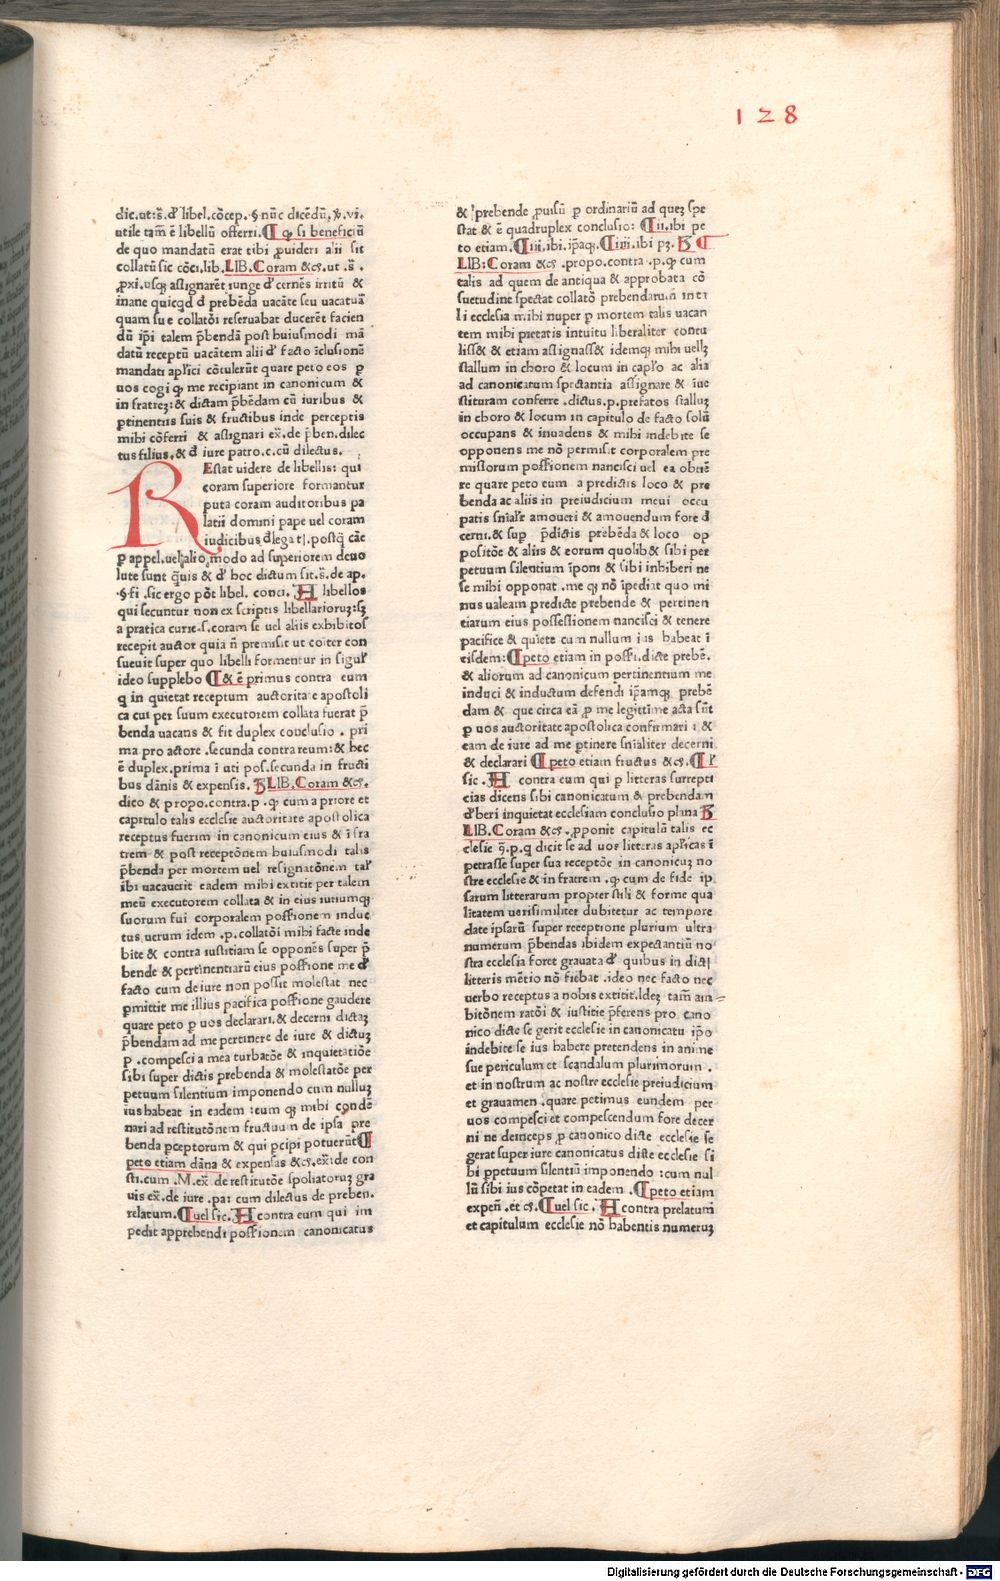 128
dic.ut:s̄.đ libel.cōcep.§ nūc dicēdū,ꝟ.vi.
utile tam̄ ē libellū offerri.¶ ꝙ si beneficiū
de quo mandatū erat tibi ꝓuideri alii sit
collatū sic cōci.lib.LIB.Coram &cꝭ.ut .s̄ .
ꝓxi.usqꝫ assignarēt iunge đ cernēs irritū &
inane quicqđ đ prebēda uacāte seu uacatuā
quam sue collatōi reseruabat ducerēt facien
dū ip̄i talem p̄bendā post huiusmodi mā
datū receptū uacātem alii đ facto īclusionē
mandati apl'ici cōtulerūt quare peto eos ꝑ
uos cogi ꝙ me recipiant in canonicum &
in fratreꝫ:& dictam p̄bēdam cū iuribus &
ꝑtinentiis suis & fructibus inde perceptis
mihi cōferri & assignari ex̄.de p̄ben.dilec
tus filius.& đ iure patro.c.cū dilectus.
REstat uidere de libellis: qui
coram superiore formantur
puta coram auditoribus pa
latii domini pape uel coram
iudicibus đlegatꝭ.postꝗ̄ cāe
ꝑ appel.uel alio modo ad superiorem deuo
lute sunt ꝗ̄uis & đ hoc dictum sit.s̄.de ap.
.§ fi .sic ergo pōt libel. conci. A libellos
qui secuntur non ex scriptis libellarioruꝫ:sꝫ
a pratica curie.s.coram se uel aliis exhibitos
recepit auctor quia n̄ premisit ut cōiter con
sueuit super quo libelli formentur in siguł
ideo supplebo ¶ & ē primus contra eum
q in quietat receptum auctoritate apostoli
ca cui per suum executorem collata fuerat p̄
benda uacans & fit duplex conclusio . pri
ma pro actore .secunda contra reum:& hec
ē duplex.prima ī uti pos.secunda in fructi
bus dānis & expensis. B LIB.Coram &cꝭ.
dico & propo.contra.p . ꝙ cum a priore et
capitulo talis ecclesie auctoritate apostolica
receptus fuerim in canonicum eius & ī fra
trem & post receptōnem huiusmodi talis
p̄benda per mortem uel resignatōnem tał
ibi uacauerit eadem mihi extitit per talem
meū executorem collata & in eius iuriumqꝫ
suorum fui corporalem possionem induc
tus uerum idem .p.collatōi mihi facte inde
bite & contra iustitiam se opponēs super p̄
bende & pertinentiarū eius possione me đ
facto cum de iure non possit molestat nec
ꝑmittit me illius pacifica possione gaudere
quare peto ꝑ uos declarari.& decerni dictaꝫ
p̄bendam ad me pertinere de iure & dictuꝫ
p .compesci a mea turbatōe & inquietatiōe
sibi super dictis prebenda & molestatōe per
petuum silentium imponendo cum nulluꝫ
ius habeat in eadem :eum qꝫ mihi condē
nari ad restitutōnem fructuum de ipsa pre
benda ꝑceptorum & qui ꝑcipi potuerūt ¶
peto etiam dāna & expensas &cꝭ.ex̄:de con
sti.cum .M.ex̄ de restitutōe spoliatoruꝫ gra
uis ex̄.de iure .pat cum dilectus de preben.
relatum. ¶uel sic. A contra eum qui im
pedit apprehendi possionem canonicatus
& prebende ꝓuisū ꝑ ordinariū ad queꝫ spe
stat & ē quadruplex conclusio: ¶ii.ibi pe
to etiam. ¶iii.ibi.ip̄aqꝫ. ¶iiii.ibi pꝫ. B ¶
LIB:Coram &cꝭ .propo.contra .p.ꝙ cum
talis ad quem de antiqua & approbata cō
suetudine spectat collatō prebendarum in ta
li ecclesia mihi nuper ꝑ mortem talis uacan
tem mihi pietatis intuitu liberaliter contu
liss& & etiam assignass& idemqꝫ mihi uellꝫ
stallum in choro & locum in capło ac alia
ad canonicatum spectantia assignare & īue
stituram conferre .dictus.p.prefatos stalluꝫ
in choro & locum in capitulo de facto solū
occupans & inuadens & mihi indebite se
opponens me nō permisit corporalem pre
missorum possionem nancisci uel ea obtē
re quare peto eum a predictis loco & pre
benda ac aliis in preiudicium meui occu
patis sn̄ialr amoueri & amouendum fore đ
cerni.& sup p̄dictis prebēda & loco op
positōe & aliis & eorum quolib& sibi per
petuum silentium īponi & sibi inhiberi ne
se mihi opponat .me qꝫ nō īpediat quo mi
nus ualeam predicte prebende & pertinen
tiarum eius possestionem nancisci & tenere
pacifice & quiete cum nullum ius habeat ī
eisdem: ¶peto etiam in possi.dicte prebē.
& aliorum ad canonicum pertinentium me
induci & inductum defendi ip̄amqꝫ prebē
dam & que circa eā ꝑ me legittime acta sūt
ꝑ uos auctoritate apostolica confirmari ı &
eam de iure ad me ꝑtinere sn̄ialiter decerni
& declarari ¶peto etiam fructus &cꝭ. ¶ł
sic . A contra eum qui ꝑ litteras surrepti
cias dicens sibi canonicatum & prebendam
đberi inquietat ecclesiam conclusio plana B
LIB.Coram &cꝭ .ꝓponit capitulū talis ec
clesie ꝯ̄.p.q dicit se ad uos litteras apłicas ī
petrasse super sua receptōe in canonicuꝫ no
stre ecclesie & in fratrem .ꝙ cum de fide ip
sarum litterarum propter stili & forme qua
litatem uerisimiliter dubitetur ac tempore
date ipsarū super receptione plurium ultra
numerum p̄bendas ibidem expectantiū no
stra ecclesia foret grauata đ quibus in dictꝭ
litteris mētio nō fiebat .ideo nec facto nec
uerbo receptus a nobis extitit.Ideꝫ tam̄ am
bitōnem ratōi & iustitie p̄ferens pro cano
nico dicte se gerit ecclesie in canonicatu ip̄o
indebite se ius habere pretendens in anime
sue periculum et scandalum plurimorum .
et in nostrum ac nostre ecclesie preiudicium
et grauamen .quare petimus eundem per
uos compesci et compescendum fore decer
ni ne deinceps ꝑ canonico dicte ecclesie se
gerat super iure canonicatus dicte ecclesie si
bi ꝑpetuum silentiū imponendo :cum nul
lū sibi ius cōpetat in eadem . ¶peto etiam
expen̄ .et cꝭ. ¶uel sic . A contra prelatum
et capitulum ecclesie nō habentis numeruꝫ
Digitalisierung gefördert durch die Deutsche Forschungsgemeinschaft - DFG